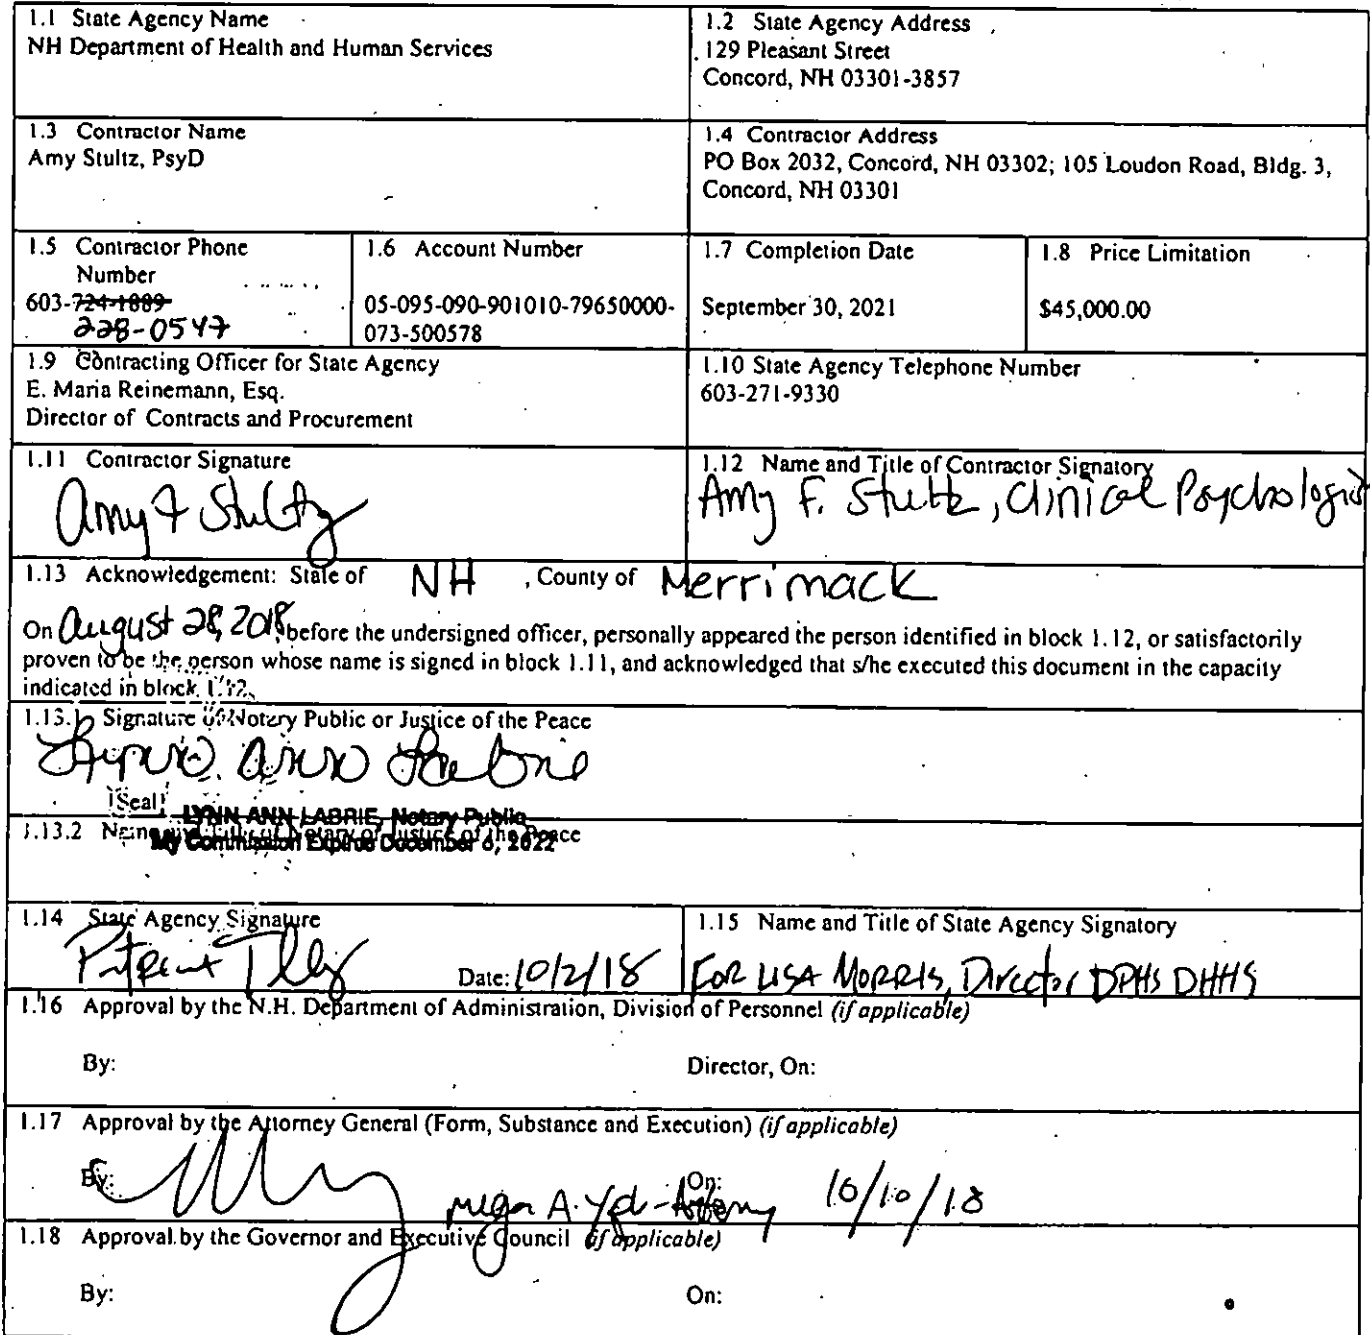 1.1 State Agency Name
NH Department of Health and Human Services
1.2 State Agency Address
129 Pleasant Street
Concord, NH 03301-3857
1.3 Contractor Name
Amy Stultz, PsyD
1.4 Contractor Address
PO Box 2032, Concord, NH 03302; 105 Loudon Road, Bldg. 3,
Concord, NH 03301
1.5 Contractor Phone
Number
603-724-1889
228-0547
1.6 Account Number
05-095-090-901010-79650000-
073-500578
1.7 Completion Date
September 30, 2021
1.8 Price Limitation
$45,000.00
1.9 Contracting Officer for State Agency
E. Maria Reinemann, Esq.
Director of Contracts and Procurement
1.10 State Agency Telephone Number
603-271-9330
1.11 Contractor Signature
Amy F Stultz
1.12 Name and Title of Contractor Signatory
Amy F. Stultz, Clinical Psychologist
1.13 Acknowledgement: State of NH , County of Merrimack
On August 28, 2018, before the undersigned officer, personally appeared the person identified in block 1.12, or satisfactorily
proven to be the person whose name is signed in block 1.11, and acknowledged that s/he executed this document in the capacity
indicated in block 1.12.
1.13.1 Signature of Notary Public or Justice of the Peace
Lynn Ann Labrie
[Seal]
LYNN ANN LABRIE, Notary Public
My Commission Expires December 6, 2022
1.13.2 Name and Title of Notary or Justice of the Peace
1.14 State Agency Signature
Date: 10/2/18
1.15 Name and Title of State Agency Signatory
FOR LISA MORRIS, Director DPHS DHHS
1.16 Approval by the N.H. Department of Administration, Division of Personnel (if applicable)
By: Director, On:
1.17 Approval by the Attorney General (Form, Substance and Execution) (if applicable)
By: A. - Attorney On: 10/10/18
1.18 Approval by the Governor and Executive Council (if applicable)
By: On: